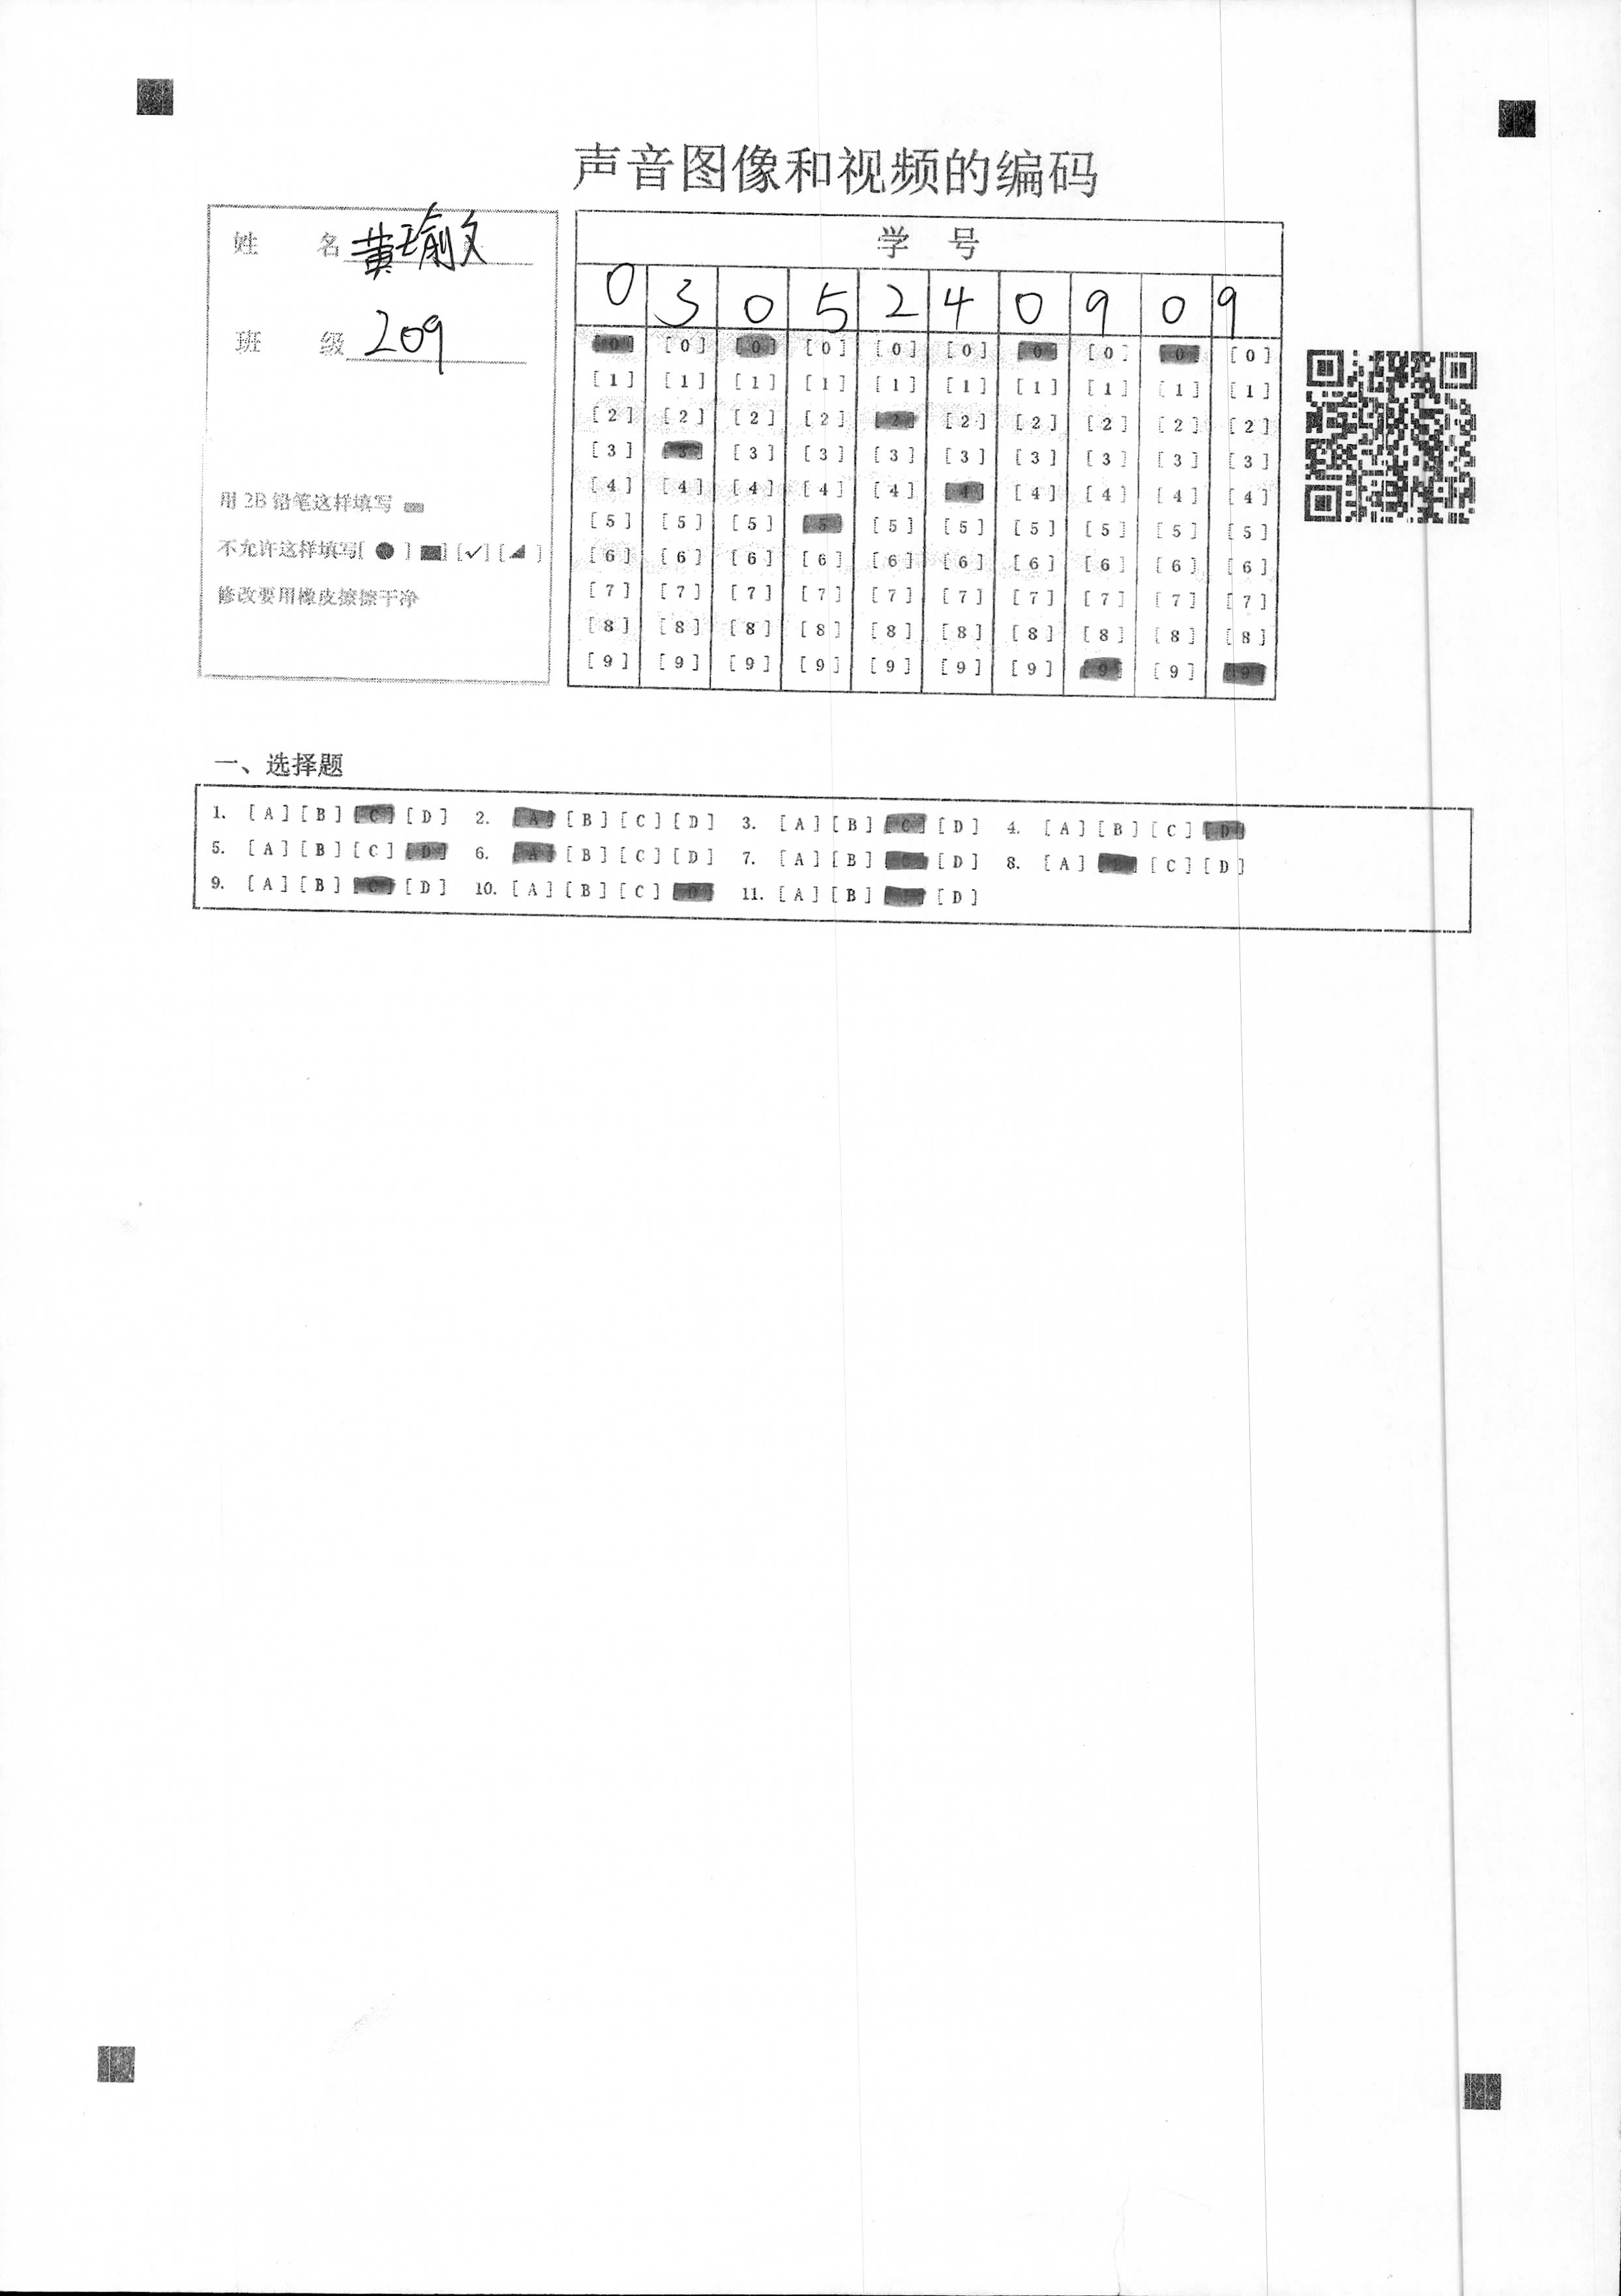 声音图像和视频的编码
姓 名 黄瑜文
班 级 209
用 2B 铅笔这样填写
不允许这样填写[ ● ] ■] [✓] [◢ ]
修改要用橡皮擦擦干净
学 号
0 3 0 5 2 4 0 9 0 9
[0] [0] [0] [0] [0] [0] [0] [0] [0] [0]
[1] [1] [1] [1] [1] [1] [1] [1] [1] [1]
[2] [2] [2] [2] [2] [2] [2] [2] [2] [2]
[3] [3] [3] [3] [3] [3] [3] [3] [3] [3]
[4] [4] [4] [4] [4] [4] [4] [4] [4] [4]
[5] [5] [5] [5] [5] [5] [5] [5] [5] [5]
[6] [6] [6] [6] [6] [6] [6] [6] [6] [6]
[7] [7] [7] [7] [7] [7] [7] [7] [7] [7]
[8] [8] [8] [8] [8] [8] [8] [8] [8] [8]
[9] [9] [9] [9] [9] [9] [9] [9] [9] [9]
一、选择题
1. [A] [B] [C] [D] 2. [A] [B] [C] [D] 3. [A] [B] [C] [D] 4. [A] [B] [C] [D]
5. [A] [B] [C] [D] 6. [A] [B] [C] [D] 7. [A] [B] [C] [D] 8. [A] [B] [C] [D]
9. [A] [B] [C] [D] 10. [A] [B] [C] [D] 11. [A] [B] [C] [D]